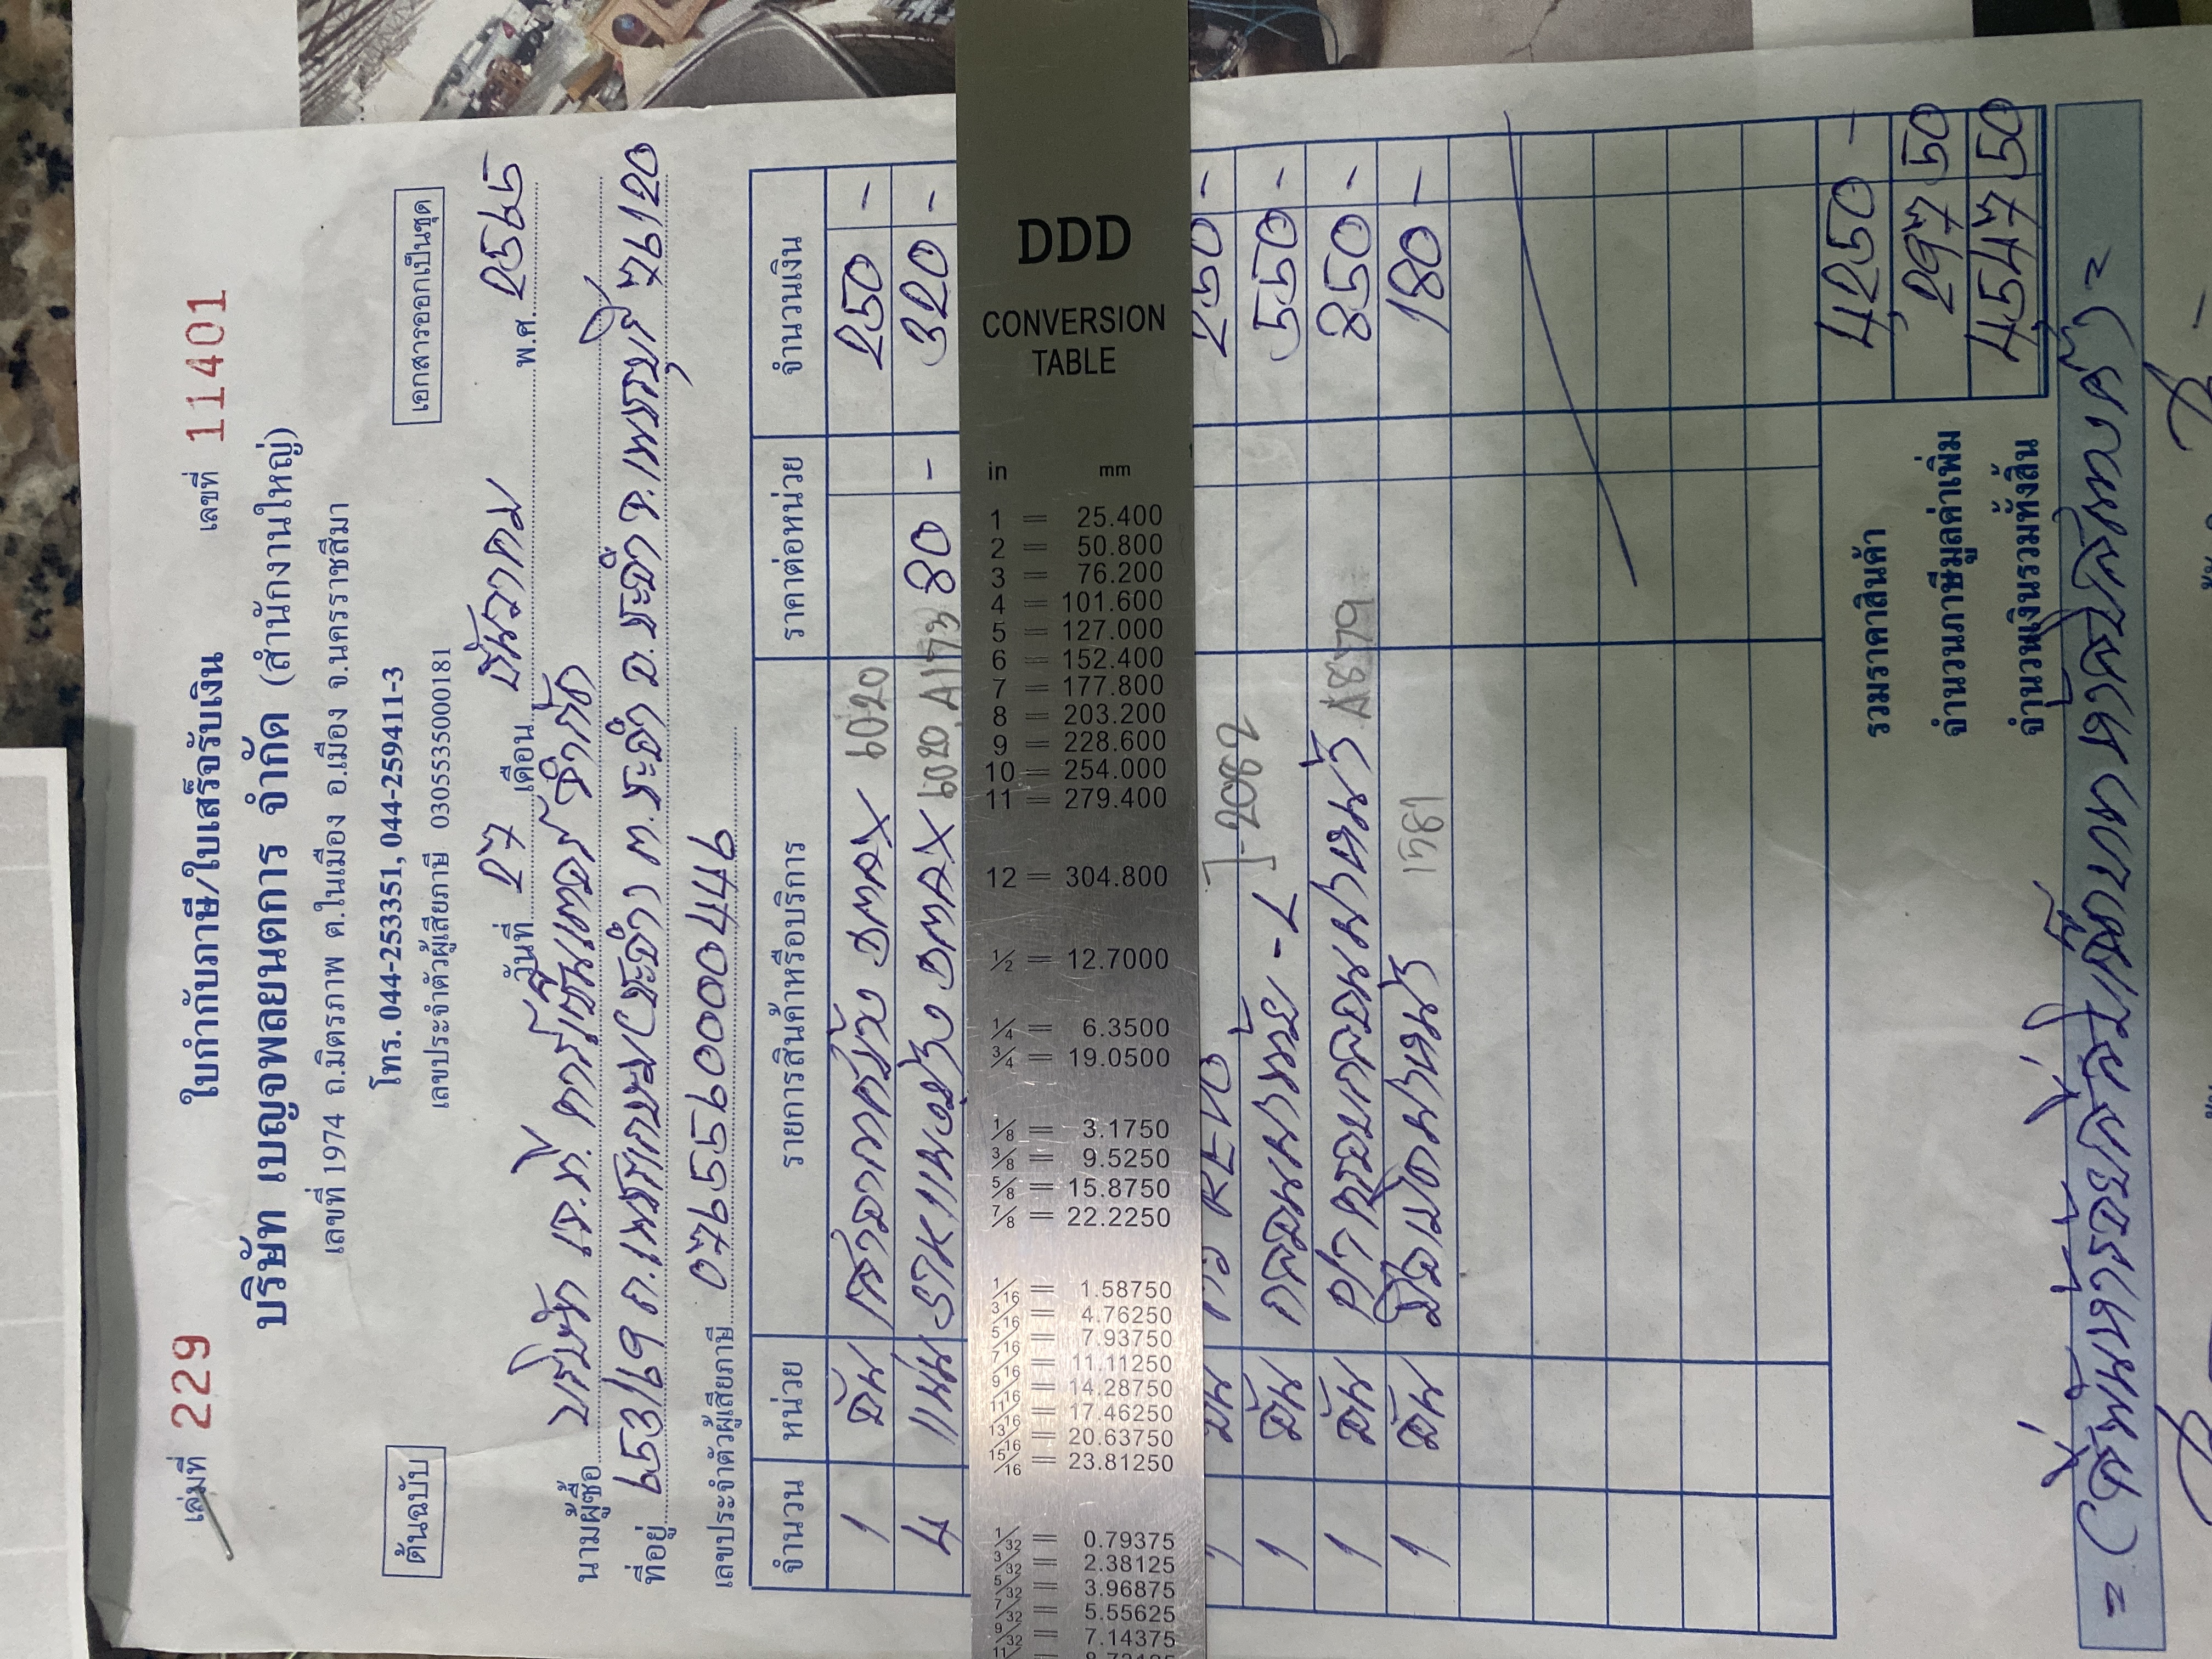 เล่มที่ 229
ใบกำกับภาษี/ใบเสร็จรับเงิน
เลขที่ 11401
บริษัท เบญจพลยนตการ จำกัด (สำนักงานใหญ่)
เลขที่ 1974 ถ.มิตรภาพ ต.ในเมือง อ.เมือง จ.นครราชสีมา
ต้นฉบับ
โทร. 044-253351, 044-259411-3
เอกสารออกเป็นชุด
เลขประจำตัวผู้เสียภาษี 0305535000181
วันที่ 27 เดือน ธันวาคม พ.ศ. 2565
นามผู้ซื้อ บริษัท เจ.ที. คาร์เซ็นเตอร์ จำกัด
ที่อยู่ 653/69 ถ.เพชรเกษม ต.ชะอำ อ.ชะอำ จ.เพชรบุรี 76120
เลขประจำตัวผู้เสียภาษี
จำนวน หน่วย รายการสินค้าหรือบริการ ราคาต่อหน่วย จำนวนเงิน
1 อัน DMAX 6020 250 -
4 แผ่น DMAX 6020 A1173 80 - 320 -
1 อัน REVO J-2082 250 -
1 อัน 550 -
1 อัน A8779 850 -
1 อัน 1581 180 -
รวมราคาสินค้า 4,250 -
จำนวนภาษีมูลค่าเพิ่ม 297 50
จำนวนเงินรวมทั้งสิ้น 4,547 50
= (สี่พันห้าร้อยสี่สิบเจ็ดบาทห้าสิบสตางค์) =
DDD
CONVERSION
TABLE
in mm
1 = 25.400
2 = 50.800
3 = 76.200
4 = 101.600
5 = 127.000
6 = 152.400
7 = 177.800
8 = 203.200
9 = 228.600
10 = 254.000
11 = 279.400
12 = 304.800
1/2 = 12.7000
1/4 = 6.3500
3/4 = 19.0500
1/8 = 3.1750
3/8 = 9.5250
5/8 = 15.8750
7/8 = 22.2250
1/16 = 1.58750
3/16 = 4.76250
5/16 = 7.93750
7/16 = 11.11250
9/16 = 14.28750
11/16 = 17.46250
13/16 = 20.63750
15/16 = 23.81250
1/32 = 0.79375
3/32 = 2.38125
5/32 = 3.96875
7/32 = 5.55625
9/32 = 7.14375